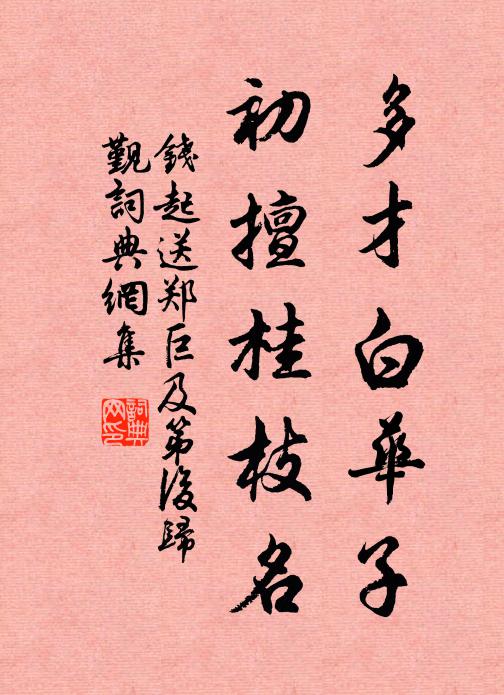 多才白華子
初擅桂枝名
錢起送郑巨及第後歸
觐詞典網集
詞典
网印